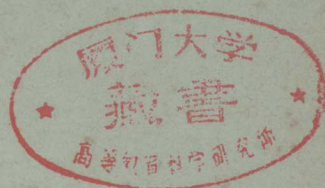 厦门大学
藏書
高等教育科学研究所